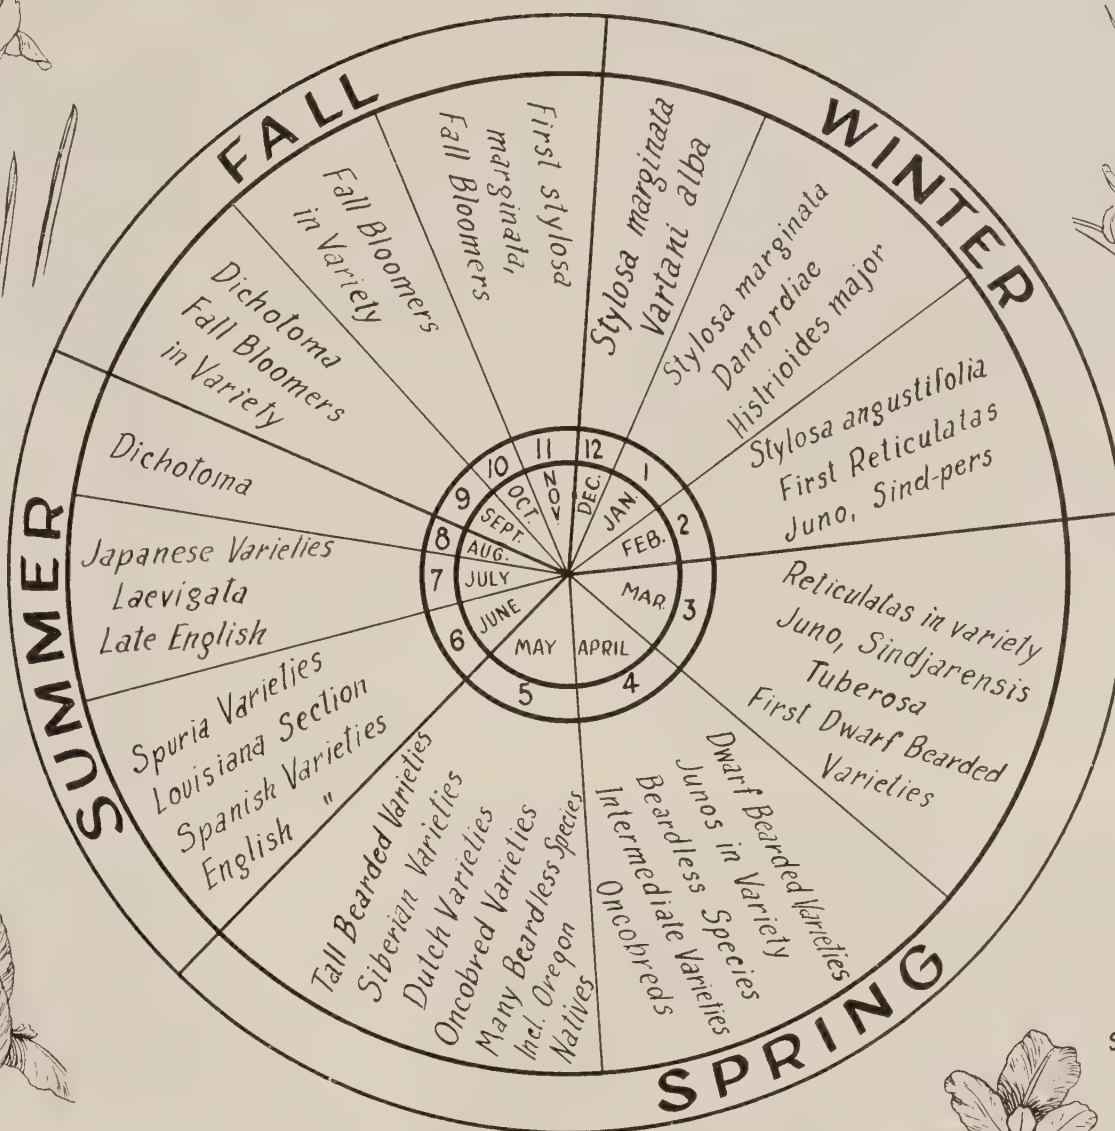 WINTER
Stylosa marginata
Vartani alba
12
DEC.
Stylosa marginata
Danfordiae
Histrioides major
1
JAN.
Stylosa angustifolia
First Reticulatas
Juno, Sind-pers
2
FEB.
SPRING
Reticulatas in variety
Juno, Sindjarensis
Tuberosa
First Dwarf Bearded
Varieties
3
MAR.
Dwarf Bearded Varieties
Junos in Variety
Beardless Species
Intermediate Varieties
Oncobreds
4
APRIL
Tall Bearded Varieties
Siberian Varieties
Dutch Varieties
Oncobred Varieties
Many Beardless Species
Incl. Oregon
Natives
5
MAY
SUMMER
Spuria Varieties
Louisiana Section
Spanish Varieties
English "
6
JUNE
Japanese Varieties
Laevigata
Late English
7
JULY
Dichotoma
8
AUG.
FALL
Dichotoma
Fall Bloomers
in Variety
9
SEPT.
Fall Bloomers
in Variety
10
OCT.
First stylosa
marginata,
Fall Bloomers
11
NOV.